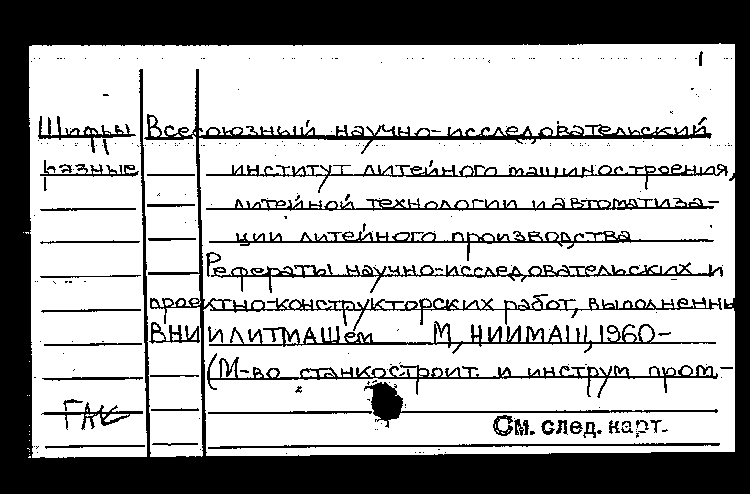 1
Шифры Всесоюзный научно-исследовательский
разные институт литейного машиностроения,
литейной технологии и автоматиза-
ции литейного производства
Рефераты научно-исследовательских и
проектно-конструкторских работ, выполненны
ВНИИЛИТМАШем М, НИИМАШ, 1960-
(М-во станкостроит. и инструм пром-
ГАК
См. след. карт.